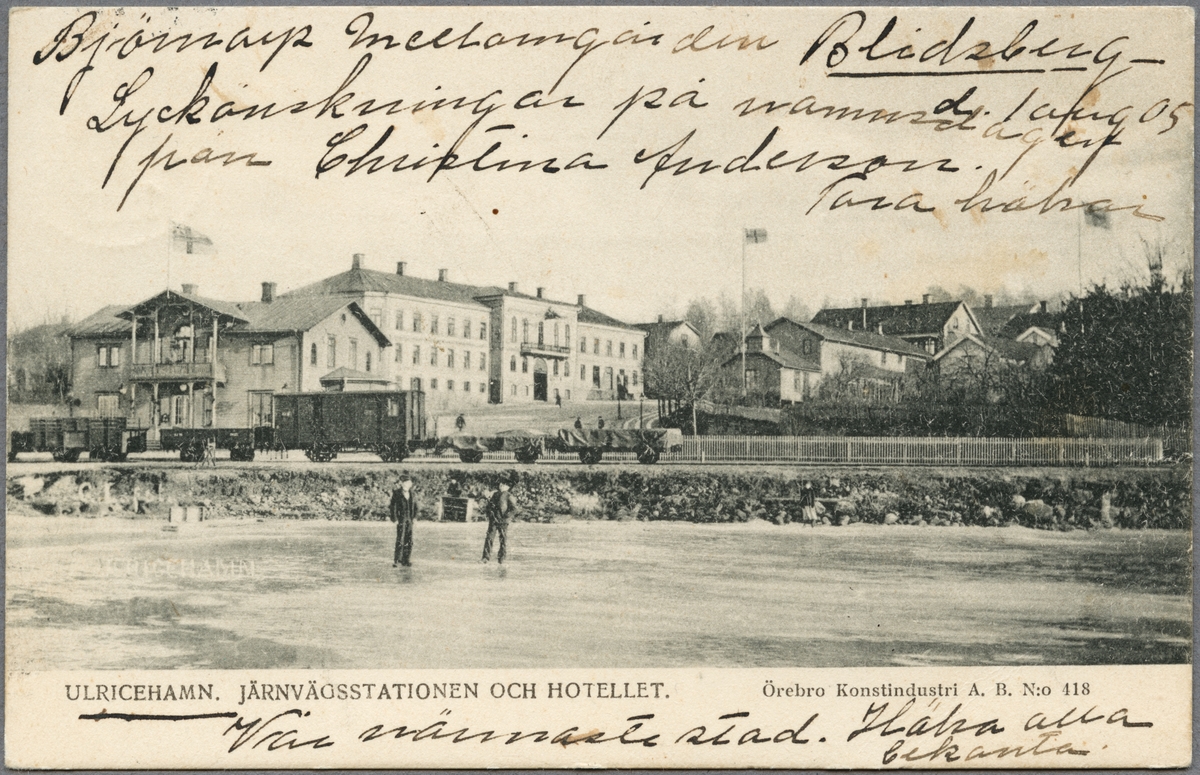 Björnarp Mellomgården Blidsberg
Lyckönskningar på namnsdagen d. 1 aug 05
från Christina Anderson.
Tora hälsar
ULRICEHAMN
ULRICEHAMN. JÄRNVÄGSSTATIONEN OCH HOTELLET.
Örebro Konstindustri A. B. N:o 418
Vår närmaste stad. Hälsa alla
bekanta.